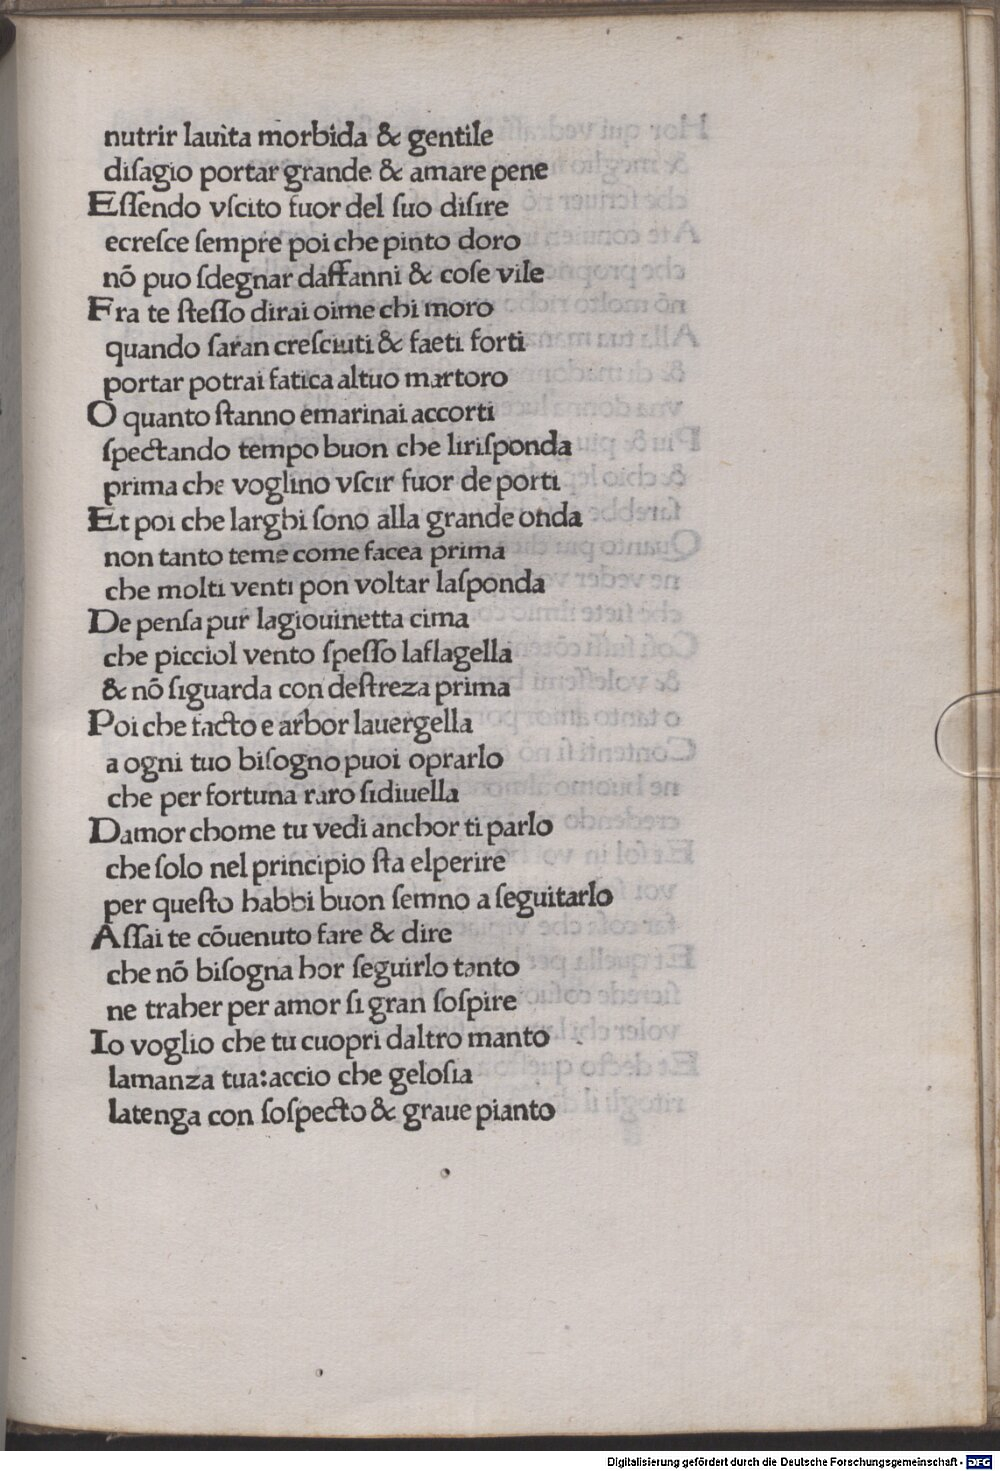 nutrir lauita morbida & gentile
diſagio portar grande & amare pene
Eſſendo vſcito fuor del ſuo diſire
ecreſce ſempre poi che pinto doro
nõ puo ſdegnar daffanni & coſe vile
Fra te ſteſſo dirai oime chi moro
quando ſaran creſciuti & faeti forti
portar potrai fatica altuo martoro
O quanto ſtanno emarinai accorti
ſpectando tempo buon che liriſponda
prima che voglino vſcir fuor de porti
Et poi che larghi ſono alla grande onda
non tanto teme come facea prima
che molti venti pon voltar laſponda
De penſa pur lagiouinetta cima
che picciol vento ſpeſſo laflagella
& nõ ſiguarda con deſtreza prima
Poi che facto e arbor lauergella
a ogni tuo biſogno puoi oprarlo
che per fortuna raro ſidiuella
Damor chome tu vedi anchor ti parlo
che ſolo nel principio ſta elperire
per queſto habbi buon ſemno a ſeguitarlo
Aſſai te cõuenuto fare & dire
che nõ biſogna hor ſeguirlo tanto
ne traher per amor ſi gran ſoſpire
Io voglio che tu cuopri daltro manto
lamanza tua:accio che geloſia
latenga con ſoſpecto & graue pianto
Digitalisierung gefördert durch die Deutsche Forschungsgemeinschaft - DFG